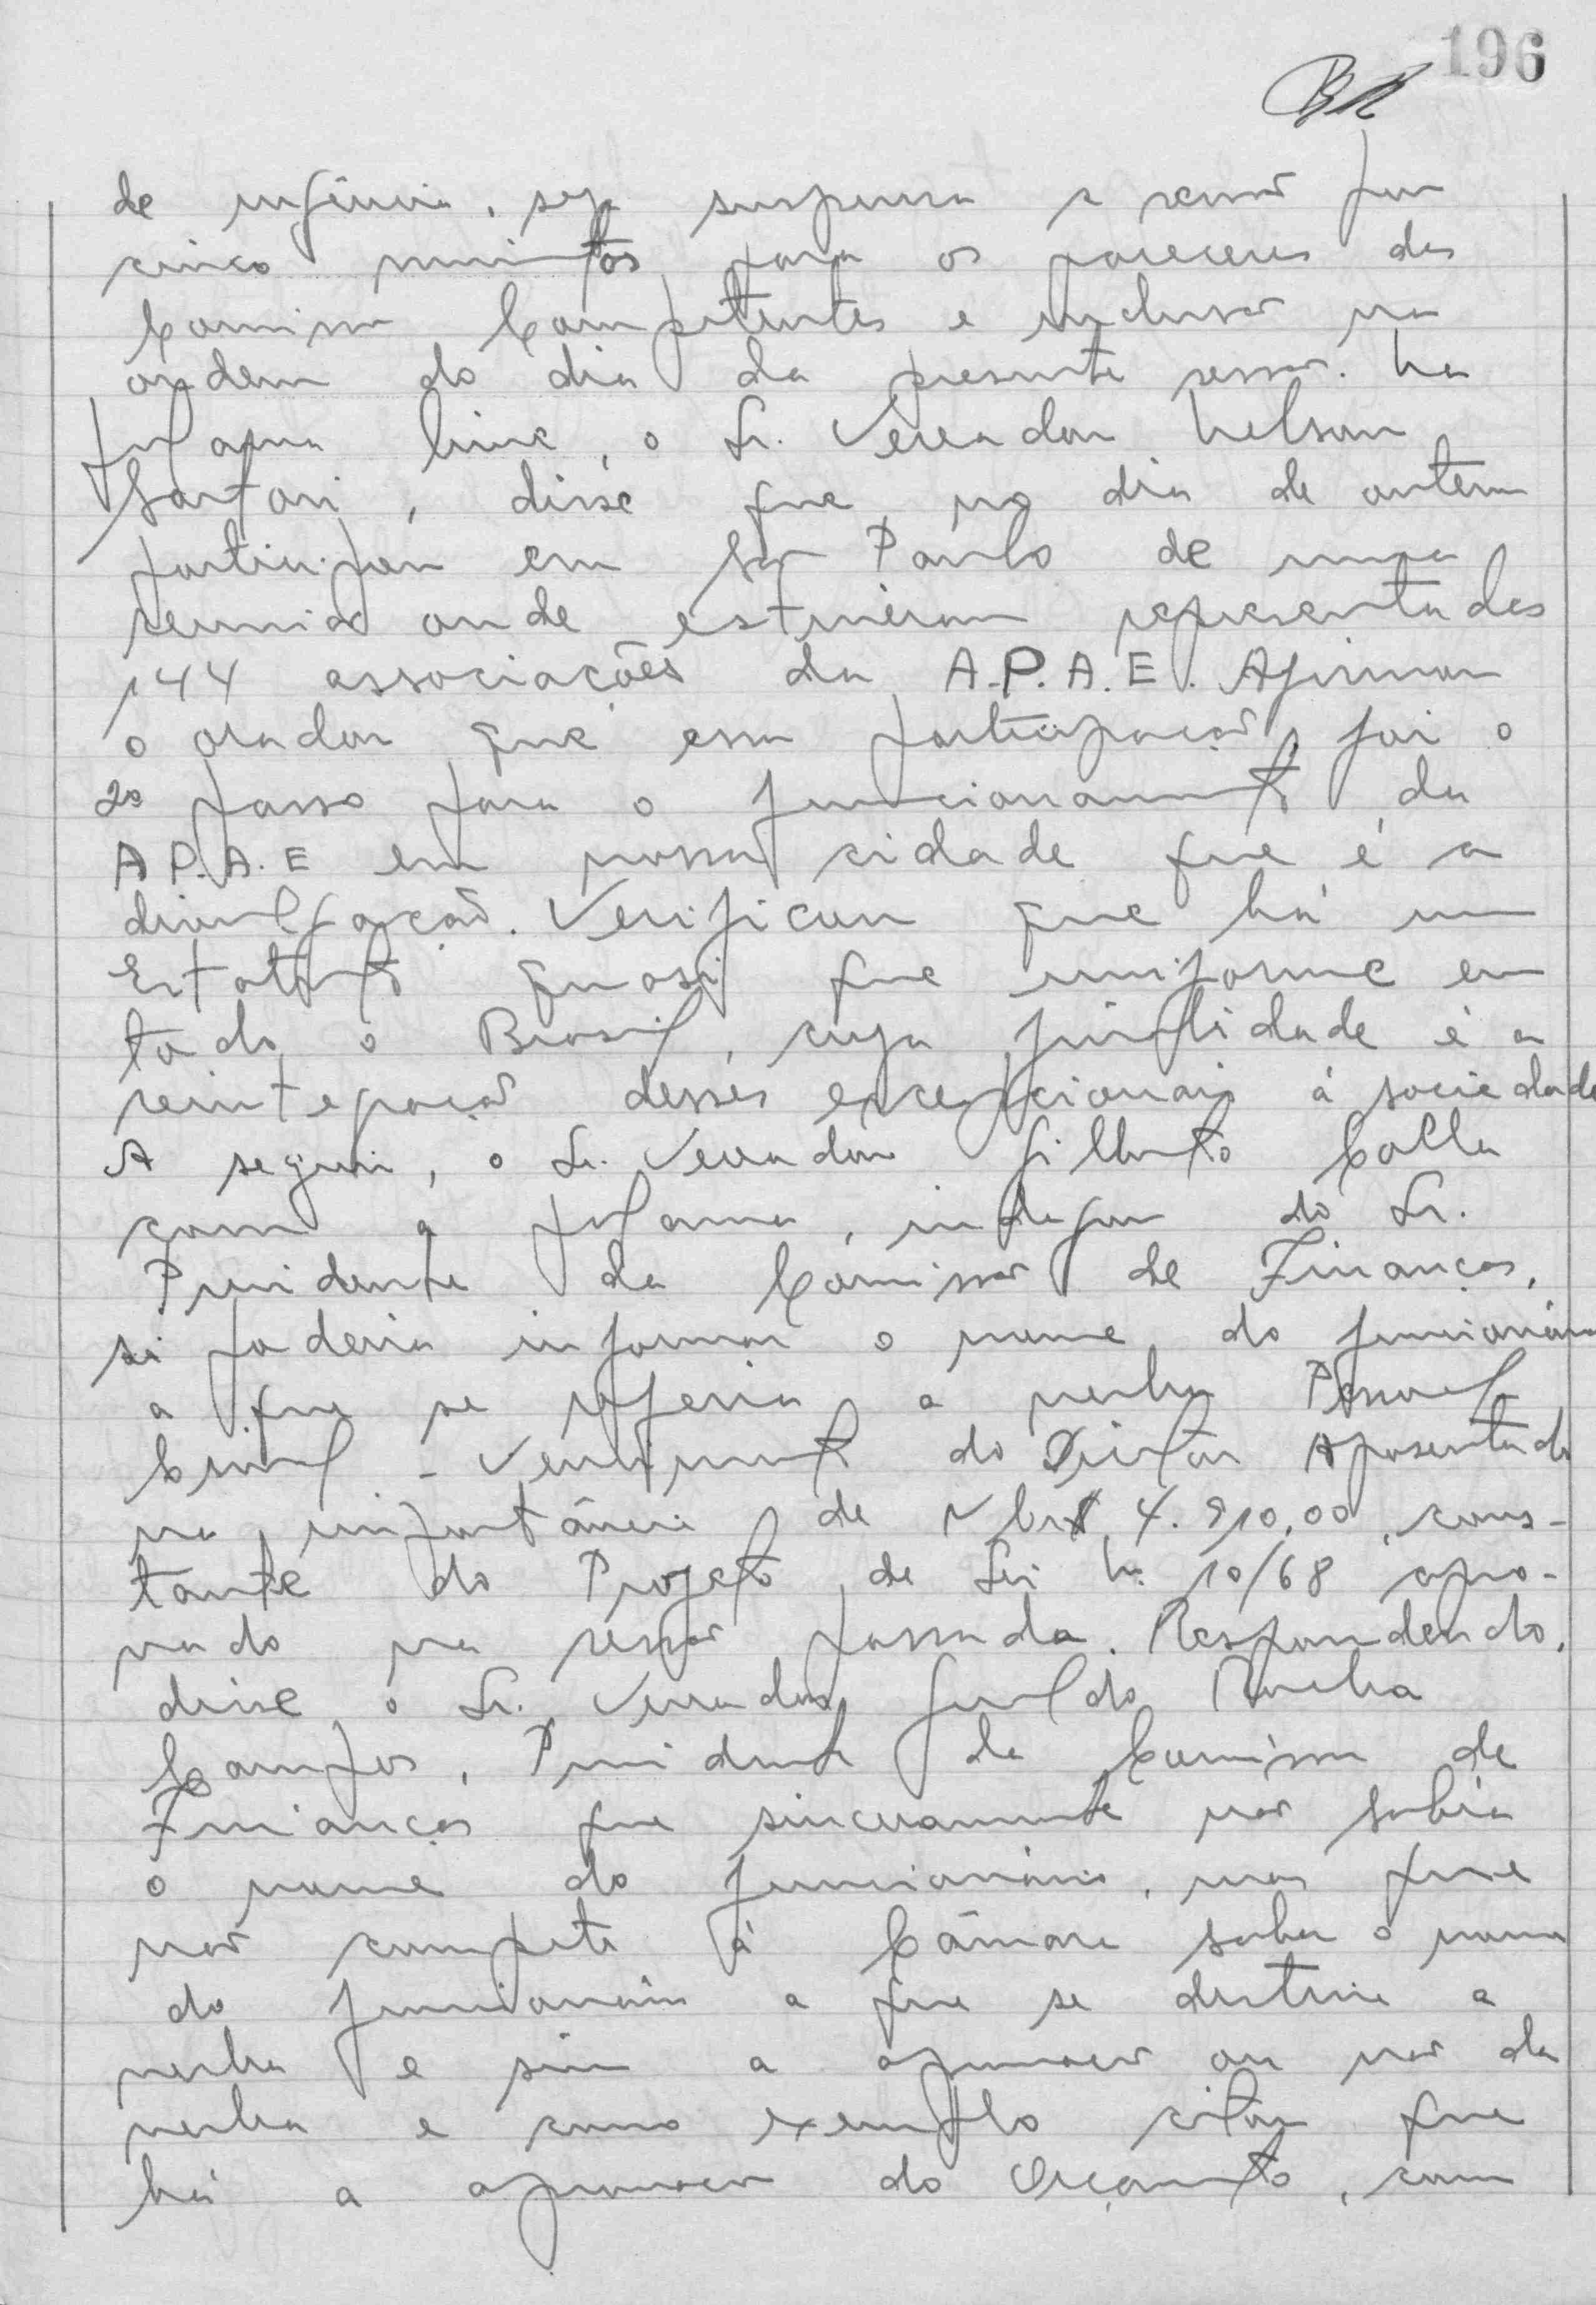 196
de urgência, seja suspensa a sessão por
cinco minutos para os pareceres das
Comissão Competentes e inclusão na
ordem do dia da presente sessão. Na
palavra livre, o Sr. Vereador Nelson
Sartori, disse que no dia de ontem
participou em São Paulo de uma
reunião onde estiveram representadas
144 associações da A.P.A.E. Afirmou
o orador que essa participação, foi o
2º passo para o funcionamento da
A P.A.E em nossa cidade que é a
divulgação. Verificou que há um
Estatuto quasi que uniforme em
todo o Brasil, cuja finalidade é a
reintegração desses excepcionais á sociedade
A seguir, o Sr. Vereador Gilberto Colla
com a palavra, indagou do Sr.
Presidente da Comissão de Finanças,
si poderia informar o nome do funcionário
a que se referia a verba Pessoal
Civil - Vencimento do Diretor Aposentado
na importância de NCr$ 4.910,00, cons-
tante do Projeto de Lei N. 10/68 apro-
vado na sessão passada. Respondendo,
disse o Sr. Vereador Geraldo Rocha
Campos, Presidente da Comissão de
Finanças que sinceramente não sabia
o nome do funcionário, mas que
não compete á Câmara saber o nome
do funcionário a que se destine a
verba e sim a aprovação ou não da
verba e como exemplo citou que
há a aprovação do Orçamento, com